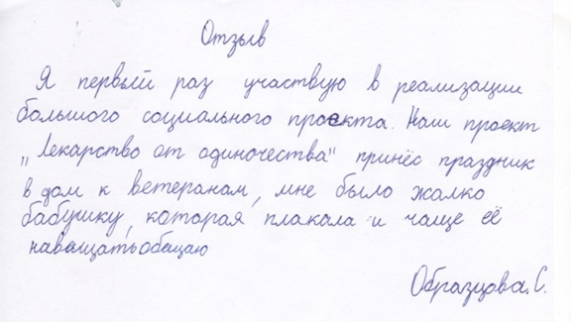 Отзыв
Я первый раз участвую в реализации
большого социального проекта. Наш проект
„Лекарство от одиночества" принёс праздник
в дом к ветеранам, мне было жалко
бабушку, которая плакала и чаще её
наващать обацаю
Образцова. С.